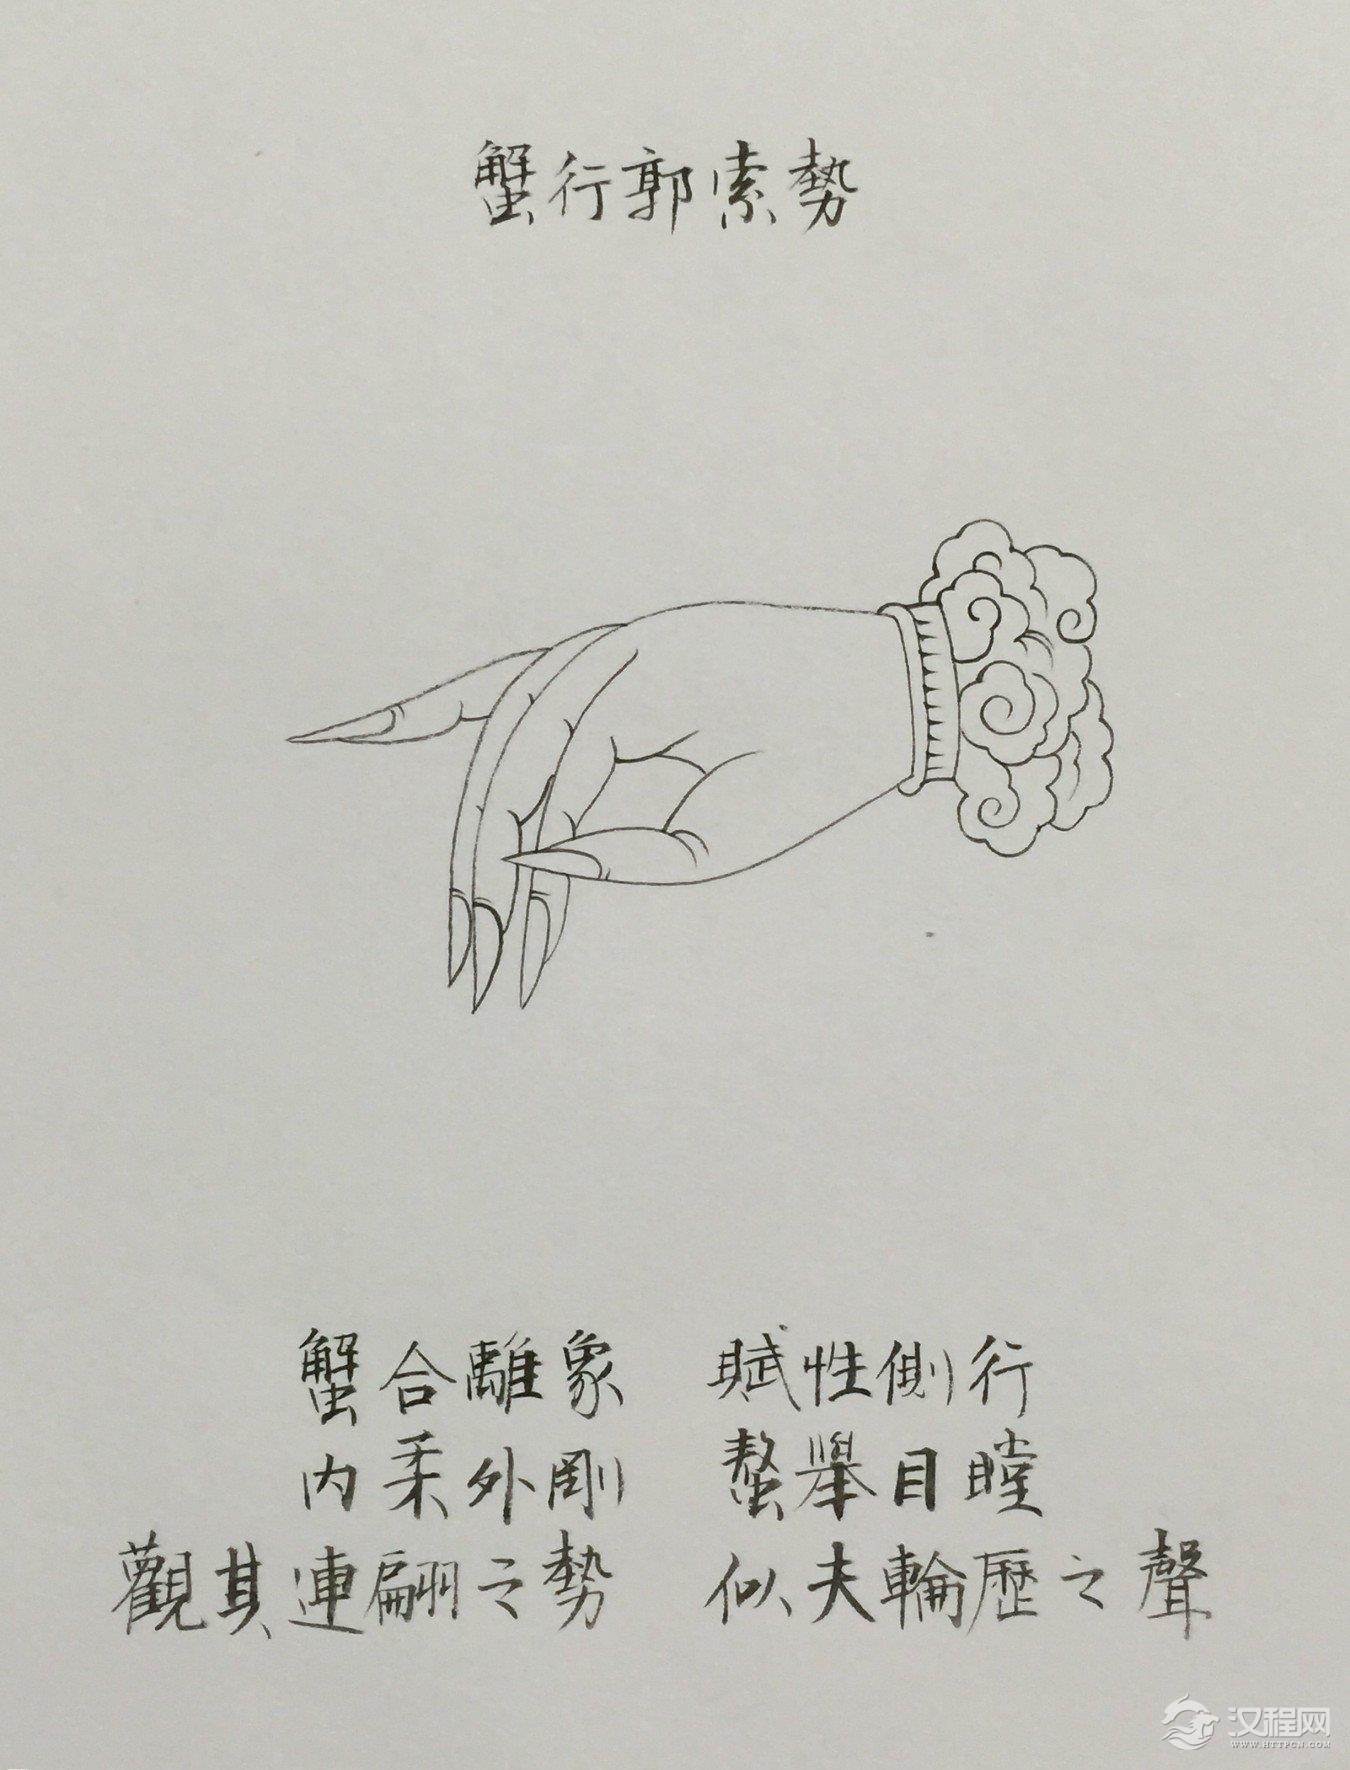 蟹行郭索勢
蟹合離象 賦性側行
內柔外剛 螯舉目瞠
觀其連翩之勢 似夫輪歷之聲
汉程网
WWW.HTTPCN.COM